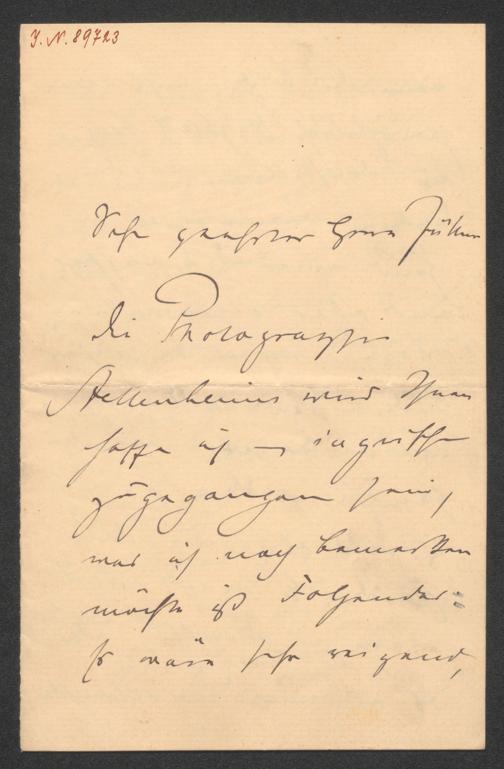 I. N. 89723
Sehr geehrter Herr
Die Photographie
Stellenheims wird Ihnen
hoffe ich – inzwischen
zugegangen sein,
was ich noch bemerken
möchte ist Folgendes:
Es wäre sehr reizend,